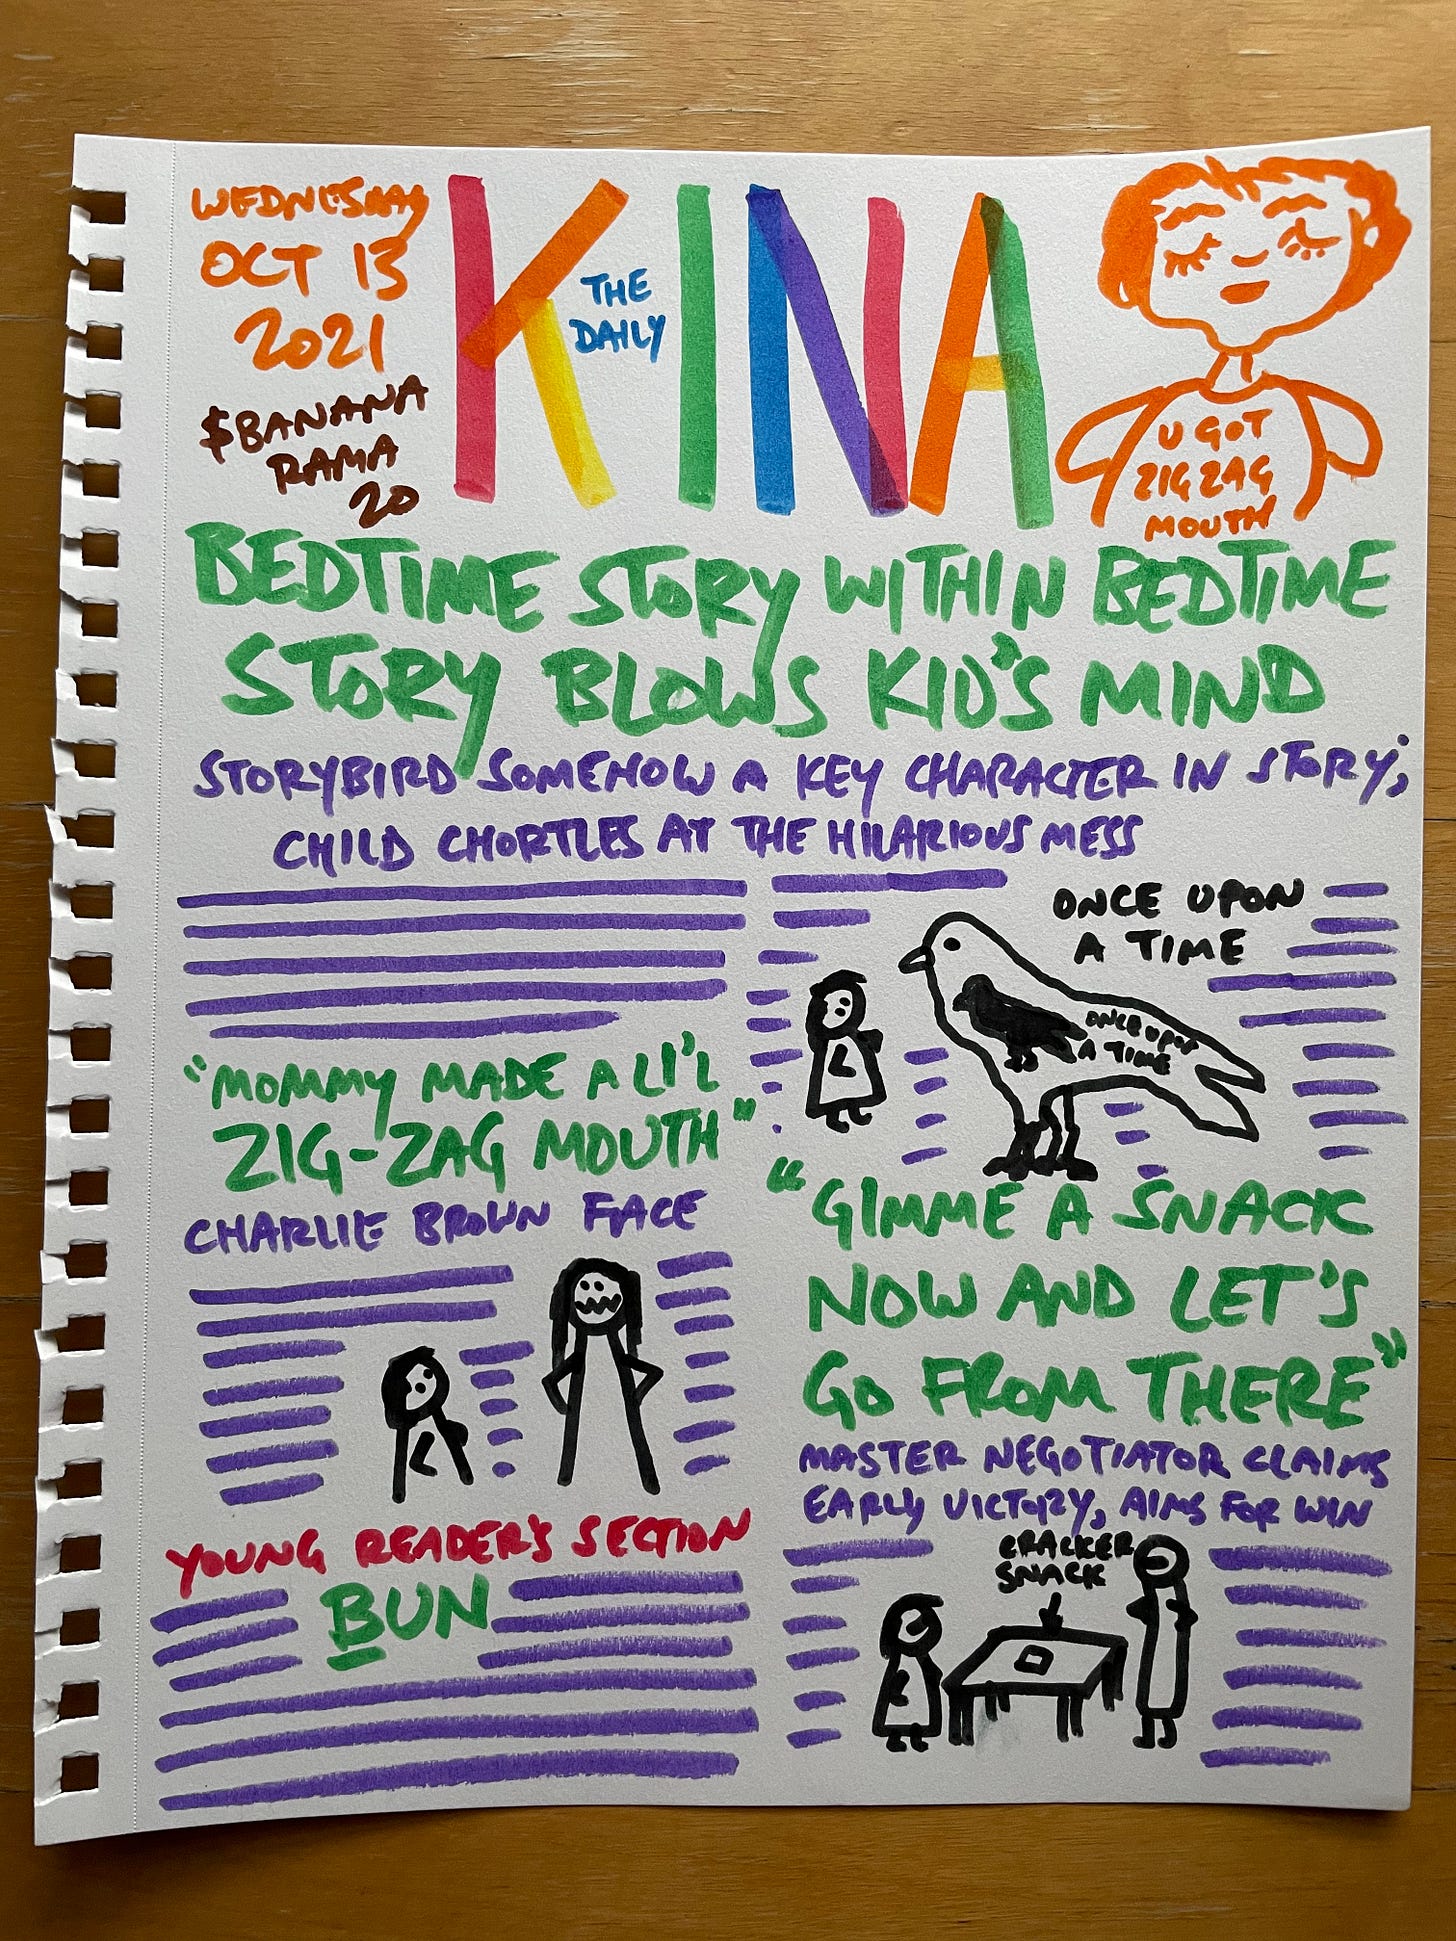 WEDNESDAY
OCT 13
2021
$BANANA
RAMA
20
KINA
THE
DAILY
U GOT
ZIG ZAG
MOUTH
BEDTIME STORY WITHIN BEDTIME
STORY BLOWS KID'S MIND
STORYBIRD SOMEHOW A KEY CHARACTER IN STORY;
CHILD CHORTLES AT THE HILARIOUS MESS
ONCE UPON
A TIME
ONCE UPON
A TIME
"MOMMY MADE A LI'L
ZIG-ZAG MOUTH"
CHARLIE BROWN FACE
"GIMME A SNACK
NOW AND LET'S
GO FROM THERE"
MASTER NEGOTIATOR CLAIMS
EARLY VICTORY, AIMS FOR WIN
CRACKER
SNACK
YOUNG READER'S SECTION
BUN